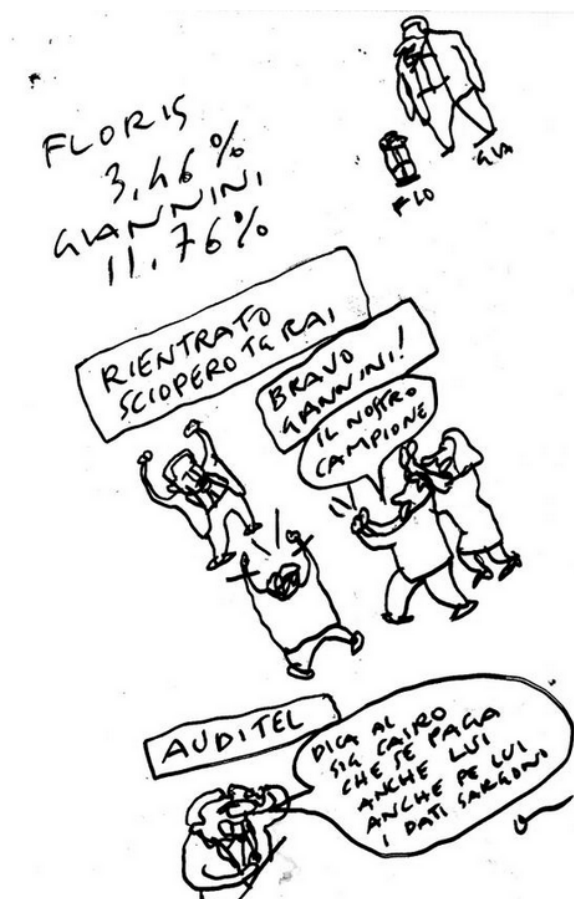 FLORIS
3,46%
GIANNINI
11.76%
FLO
GIA
RIENTRATO
SCIOPERO TG RAI
BRAVO
GIANNINI!
IL NOSTRO
CAMPIONE
AUDITEL
DICA AL
SIG CAIRO
CHE SE PAGA
ANCHE LUI
ANCHE PE LUI
I DATI SARGONO